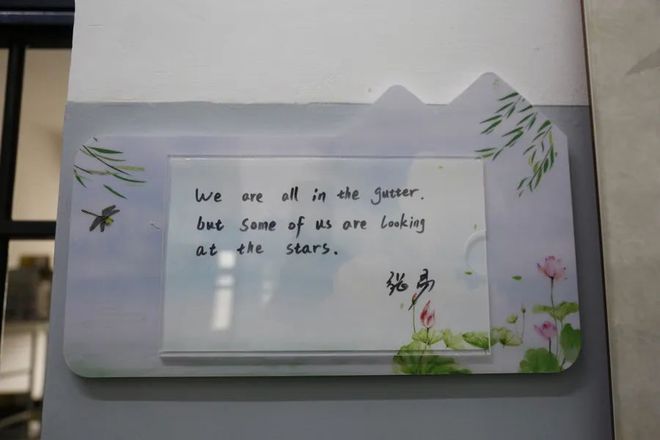 We are all in the gutter.
but some of us are looking
at the stars.